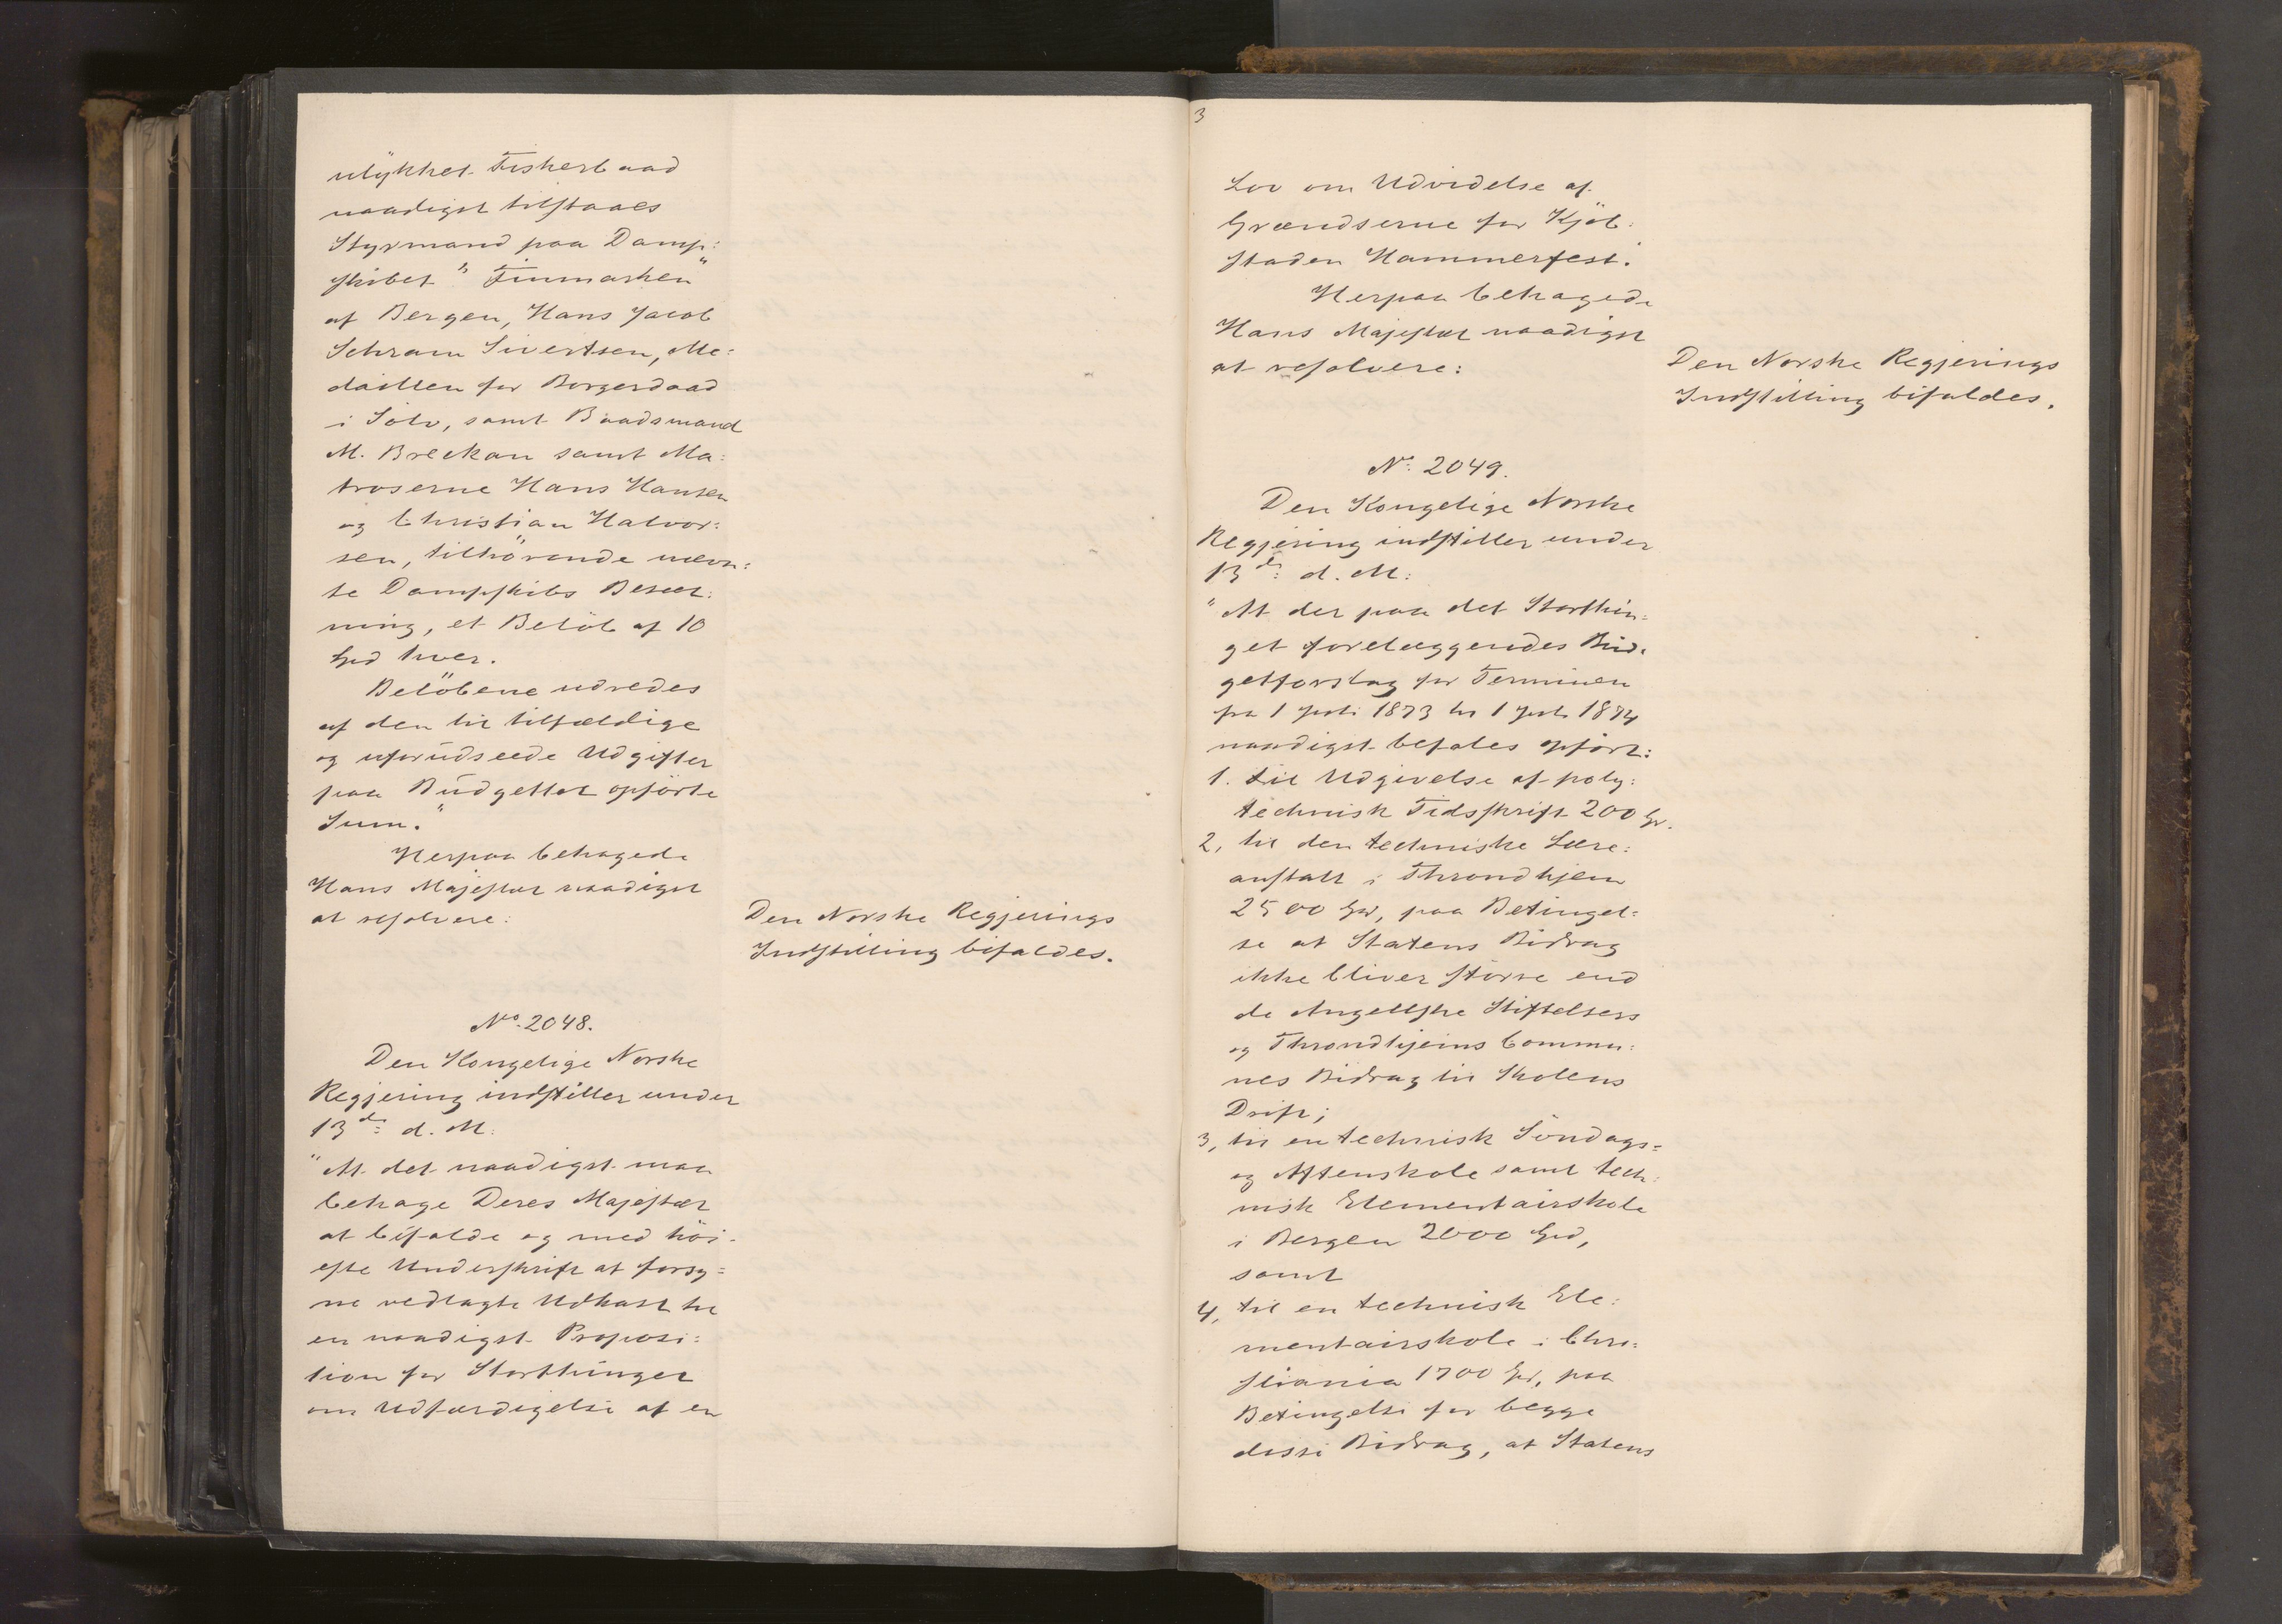 ulykket Fiskerbaad
naadigst tilstaaes
Styrmand paa Damp:
skibet "Finmarken"
af Bergen, Hans Jacob
Schram Sivertsen, Me:
daillen for Borgerdaad
i Sölv, samt Baadsmand
M. Breckan samt Ma:
troserne Hans Hansen
og Christian Halvor:
sen, tilhörende nævn:
te Dampskibs Besæt:
ning, et Belöb af 10
Spd hver.
Belöbene udredes
af den til tilfældige
og uforudseede Udgifter
paa Budgettet opförte
Sum."
Herpaa behagede
Hans Majestæt naadigst
at resolvere:
Den Norske Regjerings
Indstilling bifaldes.
No. 2048.
Den Kongelige Norske
Regjering indstiller under
13de: d. M:
"At det naadigst maa
behage Deres Majestæt
at bifalde og med höi-
este Underskrift at forsy=
ne vedlagte Udkast til
en naadigst Proposi:
tion for Storthinget
om Udfærdigelse af en
3
Lov om Udvidelse af
Grændserne for Kjöb:
staden Hammerfest."
Herpaa behagede
Hans Majestæt naadigst
at resolvere:
Den Norske Regjerings
Indstilling bifaldes.
No: 2049.
Den Kongelige Norske
Regjering indstiller under
13de: d. M:
"At der paa det Storthin:
get forelæggendes Bud:
getforslag for Terminen
fra 1 Juli 1873 til 1 Juli 1874
naadigst befales opfört:
1. til Udgivelse af poly:
technisk Tidsskrift 200 Spd.
2, til den techniske Lære:
anstalt i Throndhjem
2500 Spd, paa Betingel:
se at Statens Bidrag
ikke bliver större end
de Angellske Stiftelsers
og Throndhjems Commu:
nes Bidrag til Skolens
Drift;
3, til en technisk Söndags=
og Aftenskole samt tech:
nisk Elementairskole
i Bergen 2000 Spd,
samt
4, til en technisk Ele:
mentairskole i Chri:
stiania 1700 Spd, paa
Betingelse for begge
disse Bidrag, at Statens